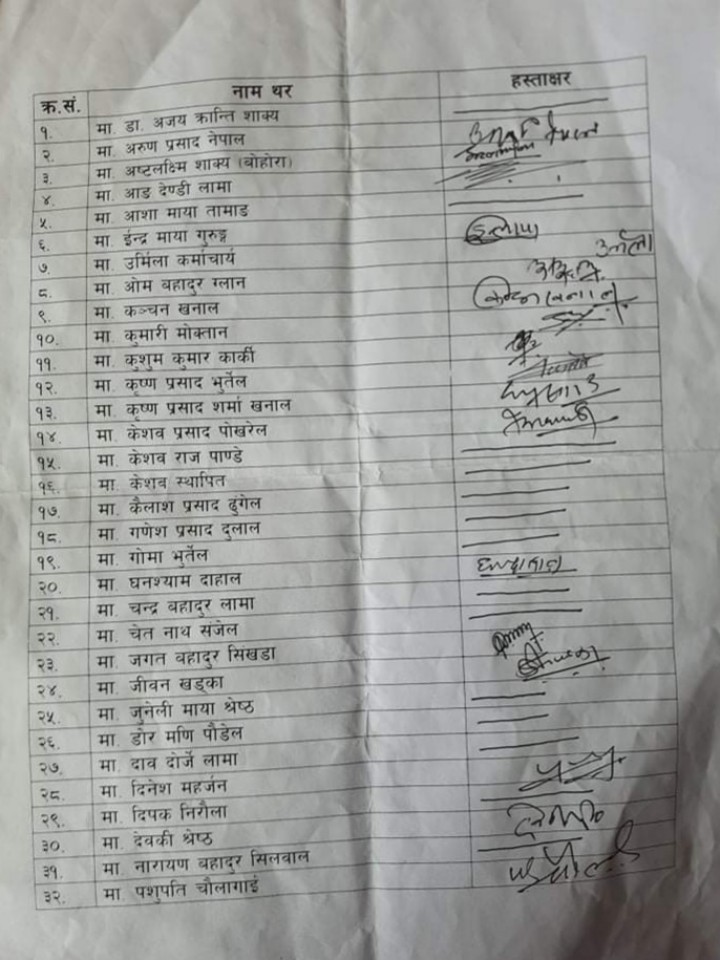 क्र.सं. नाम थर हस्ताक्षर
१. मा. डा. अजय क्रान्ति शाक्य
२. मा. अरुण प्रसाद नेपाल
३. मा. अष्टलक्ष्मि शाक्य (बोहोरा)
४. मा. आङ देण्डी लामा
५. मा. आशा माया तामाङ
६. मा. ईन्द्र माया गुरुङ्ग
७. मा. उर्मिला कर्माचार्य
८. मा. ओम बहादुर ग्लान
९. मा. कञ्चन खनाल
१०. मा. कुमारी मोक्तान
११. मा. कुशुम कुमार कार्की
१२. मा. कृष्ण प्रसाद भुर्तेल
१३. मा. कृष्ण प्रसाद शर्मा खनाल
१४. मा. केशव प्रसाद पोखरेल
१५. मा. केशव राज पाण्डे
१६. मा. केशब स्थापित
१७. मा. कैलाश प्रसाद ढुंगेल
१८. मा. गणेश प्रसाद दुलाल
१९. मा. गोमा भुर्तेल
२०. मा. घनश्याम दाहाल
२१. मा. चन्द्र बहादुर लामा
२२. मा. चेत नाथ संजेल
२३. मा. जगत बहादुर सिंखडा
२४. मा. जीवन खड्का
२५. मा. जुनेली माया श्रेष्ठ
२६. मा. डोर मणि पौडेल
२७. मा. दाव दोर्जे लामा
२८. मा. दिनेश महर्जन
२९. मा. दिपक निरौला
३०. मा. देवकी श्रेष्ठ
३१. मा. नारायण बहादुर सिलवाल
३२. मा. पशुपति चौलागाई